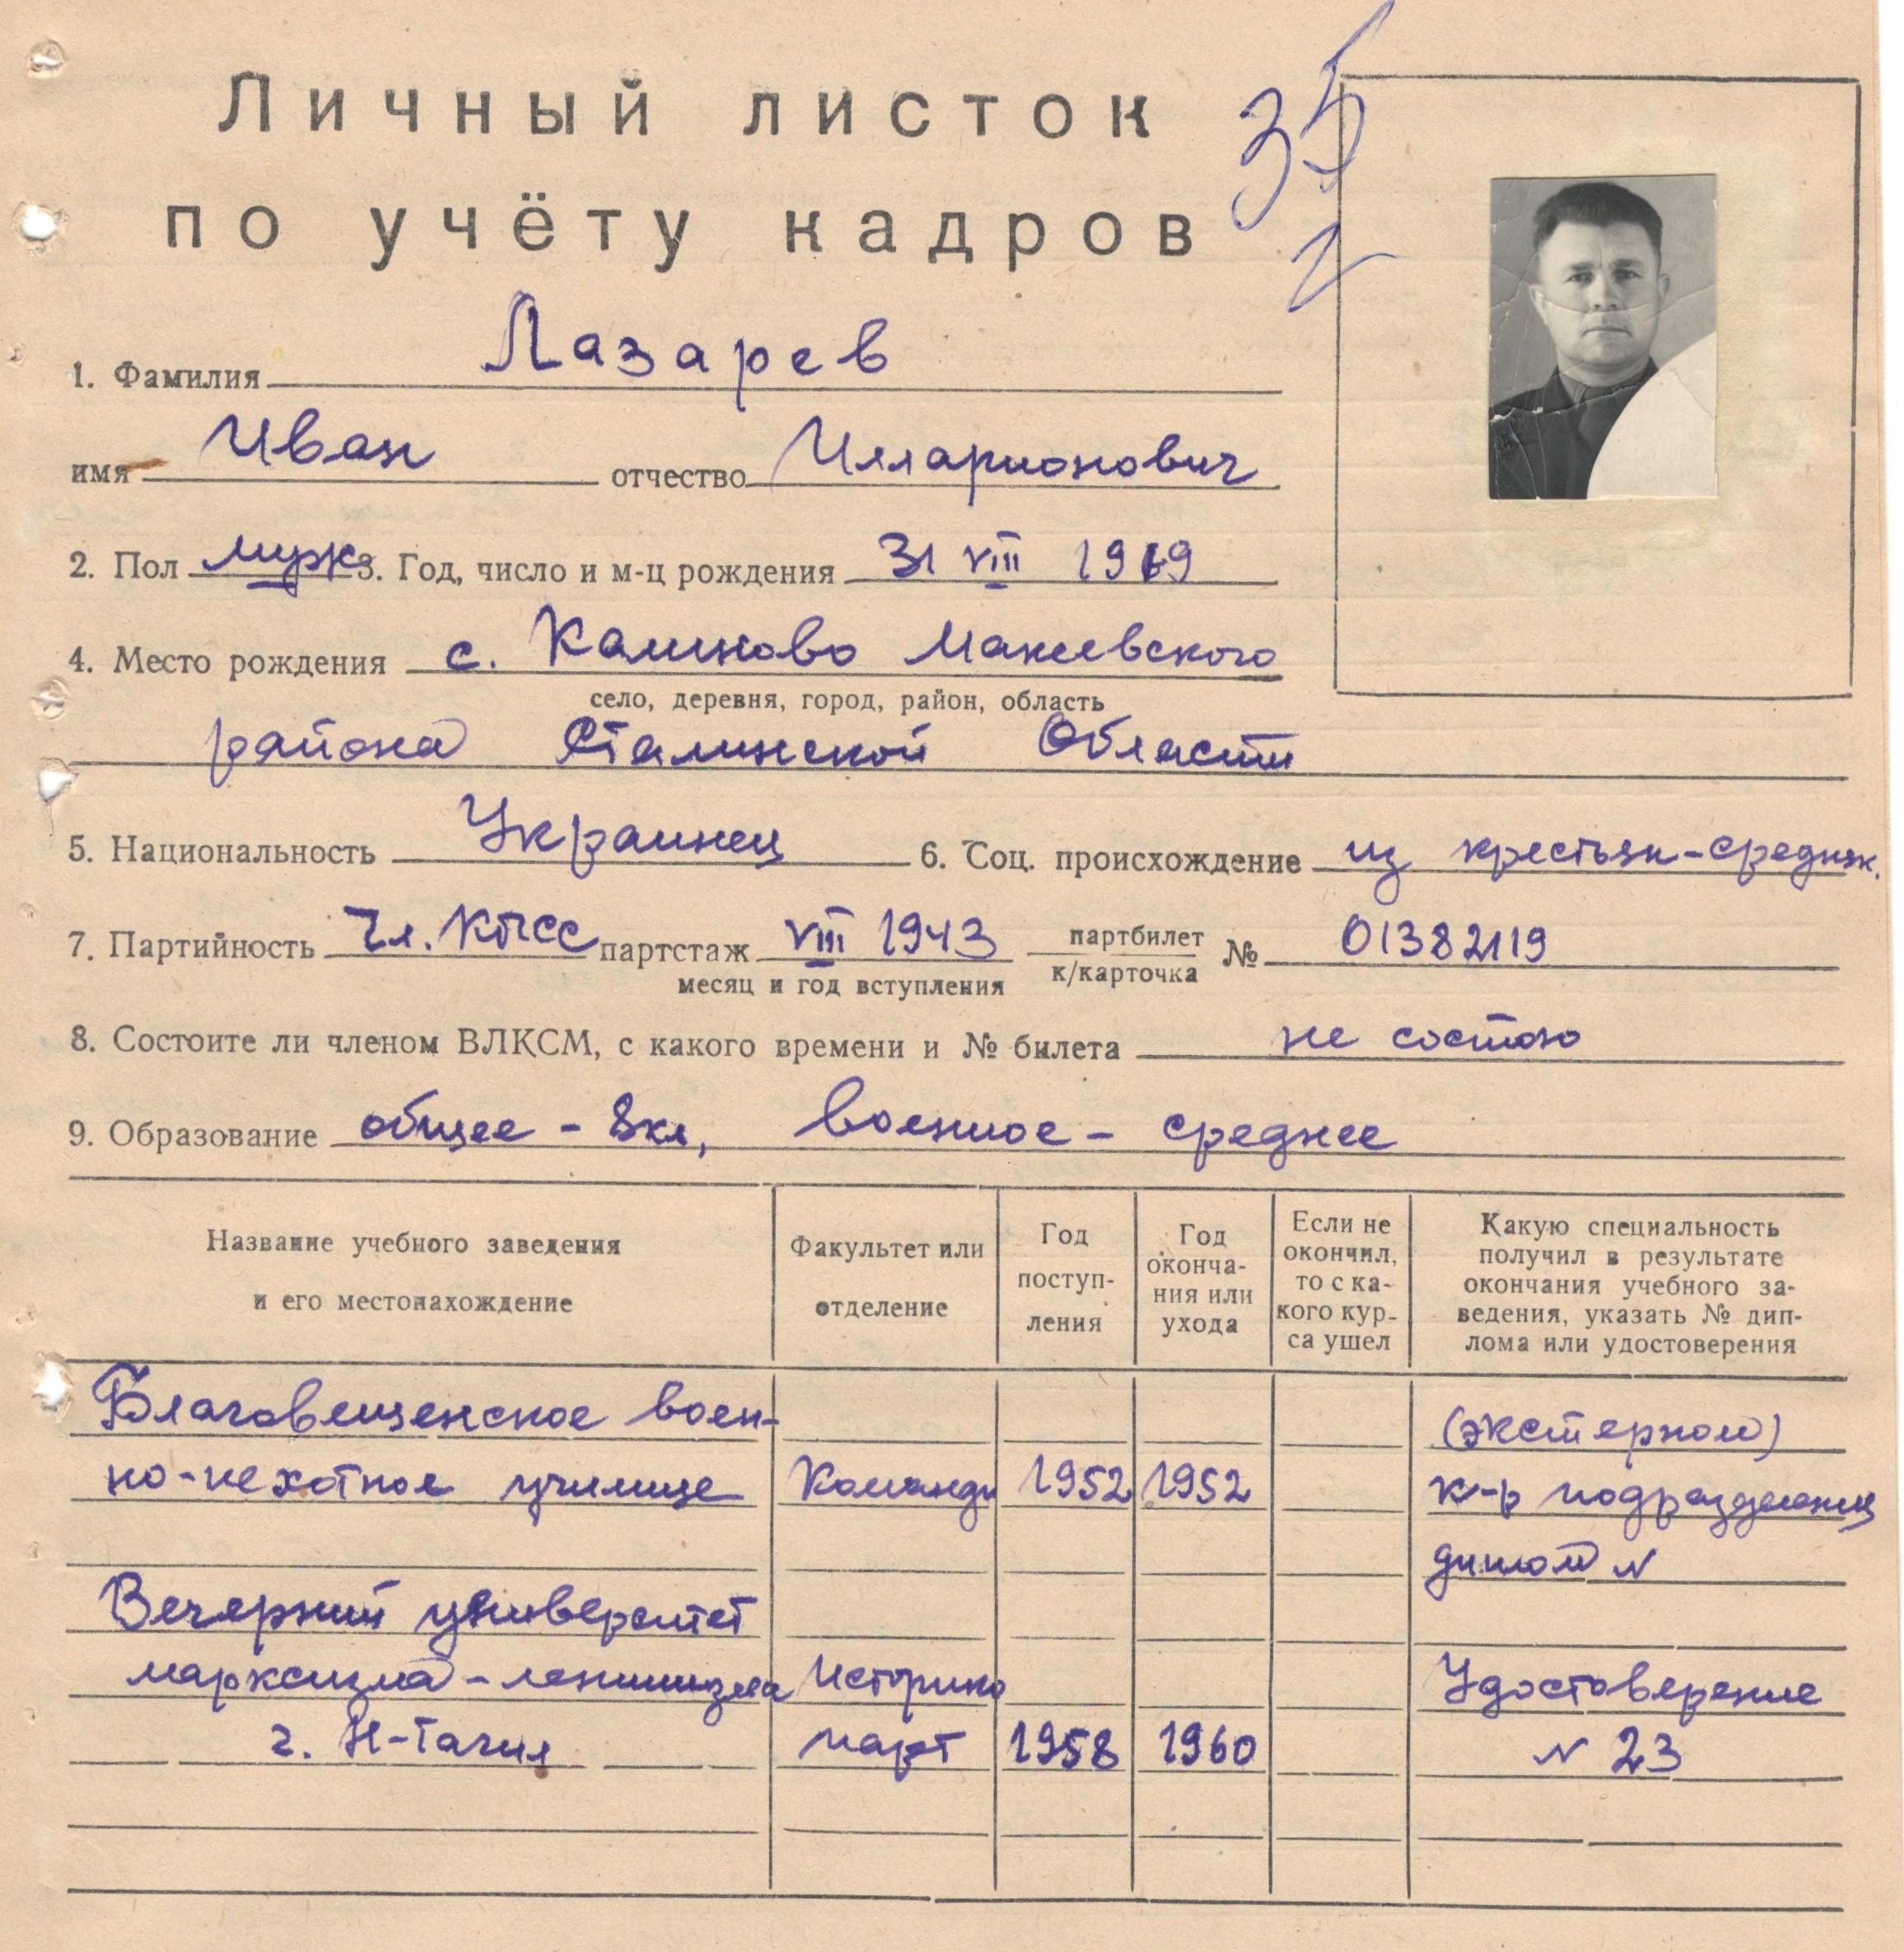 Личный листок
35
по учёту кадров
2
1. Фамилия Лазарев
имя Иван отчество Илларионович
2. Пол муж 3. Год, число и м-ц рождения 31 VIII 1919
4. Место рождения с. Калиново Макеевского
село, деревня, город, район, область
района Сталинской Области
5. Национальность Украинец 6. Соц. происхождение из крестьян-средняк.
7. Партийность Чл. КПСС партстаж VIII 1943 партбилет № 01382119
месяц и год вступления к/карточка
8. Состоите ли членом ВЛКСМ, с какого времени и № билета не состою
9. Образование общее - 8кл, военное - среднее
Название учебного заведения
и его местонахождение
Факультет или
отделение
Год
поступ-
ления
Год
оконча-
ния или
ухода
Если не
окончил,
то с ка-
кого кур-
са ушел
Какую специальность
получил в результате
окончания учебного за-
ведения, указать № дип-
лома или удостоверения
Благовещенское воен- (экстерном)
но-пехотное училище Команди 1952 1952 к-р подразделениц
диплом N
Вечерний университет
марксизма-ленинизма Историко Удостоверение
г. Н-Тагил парт 1958 1960 N 23